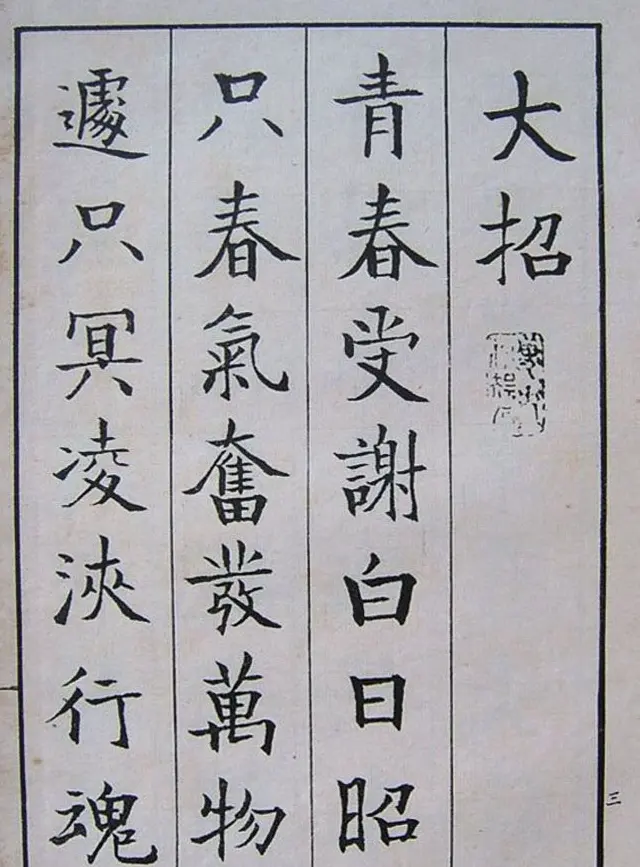 大招
青春受謝白日昭
只春氣奮發萬物
遽只冥凌浹行魂
三